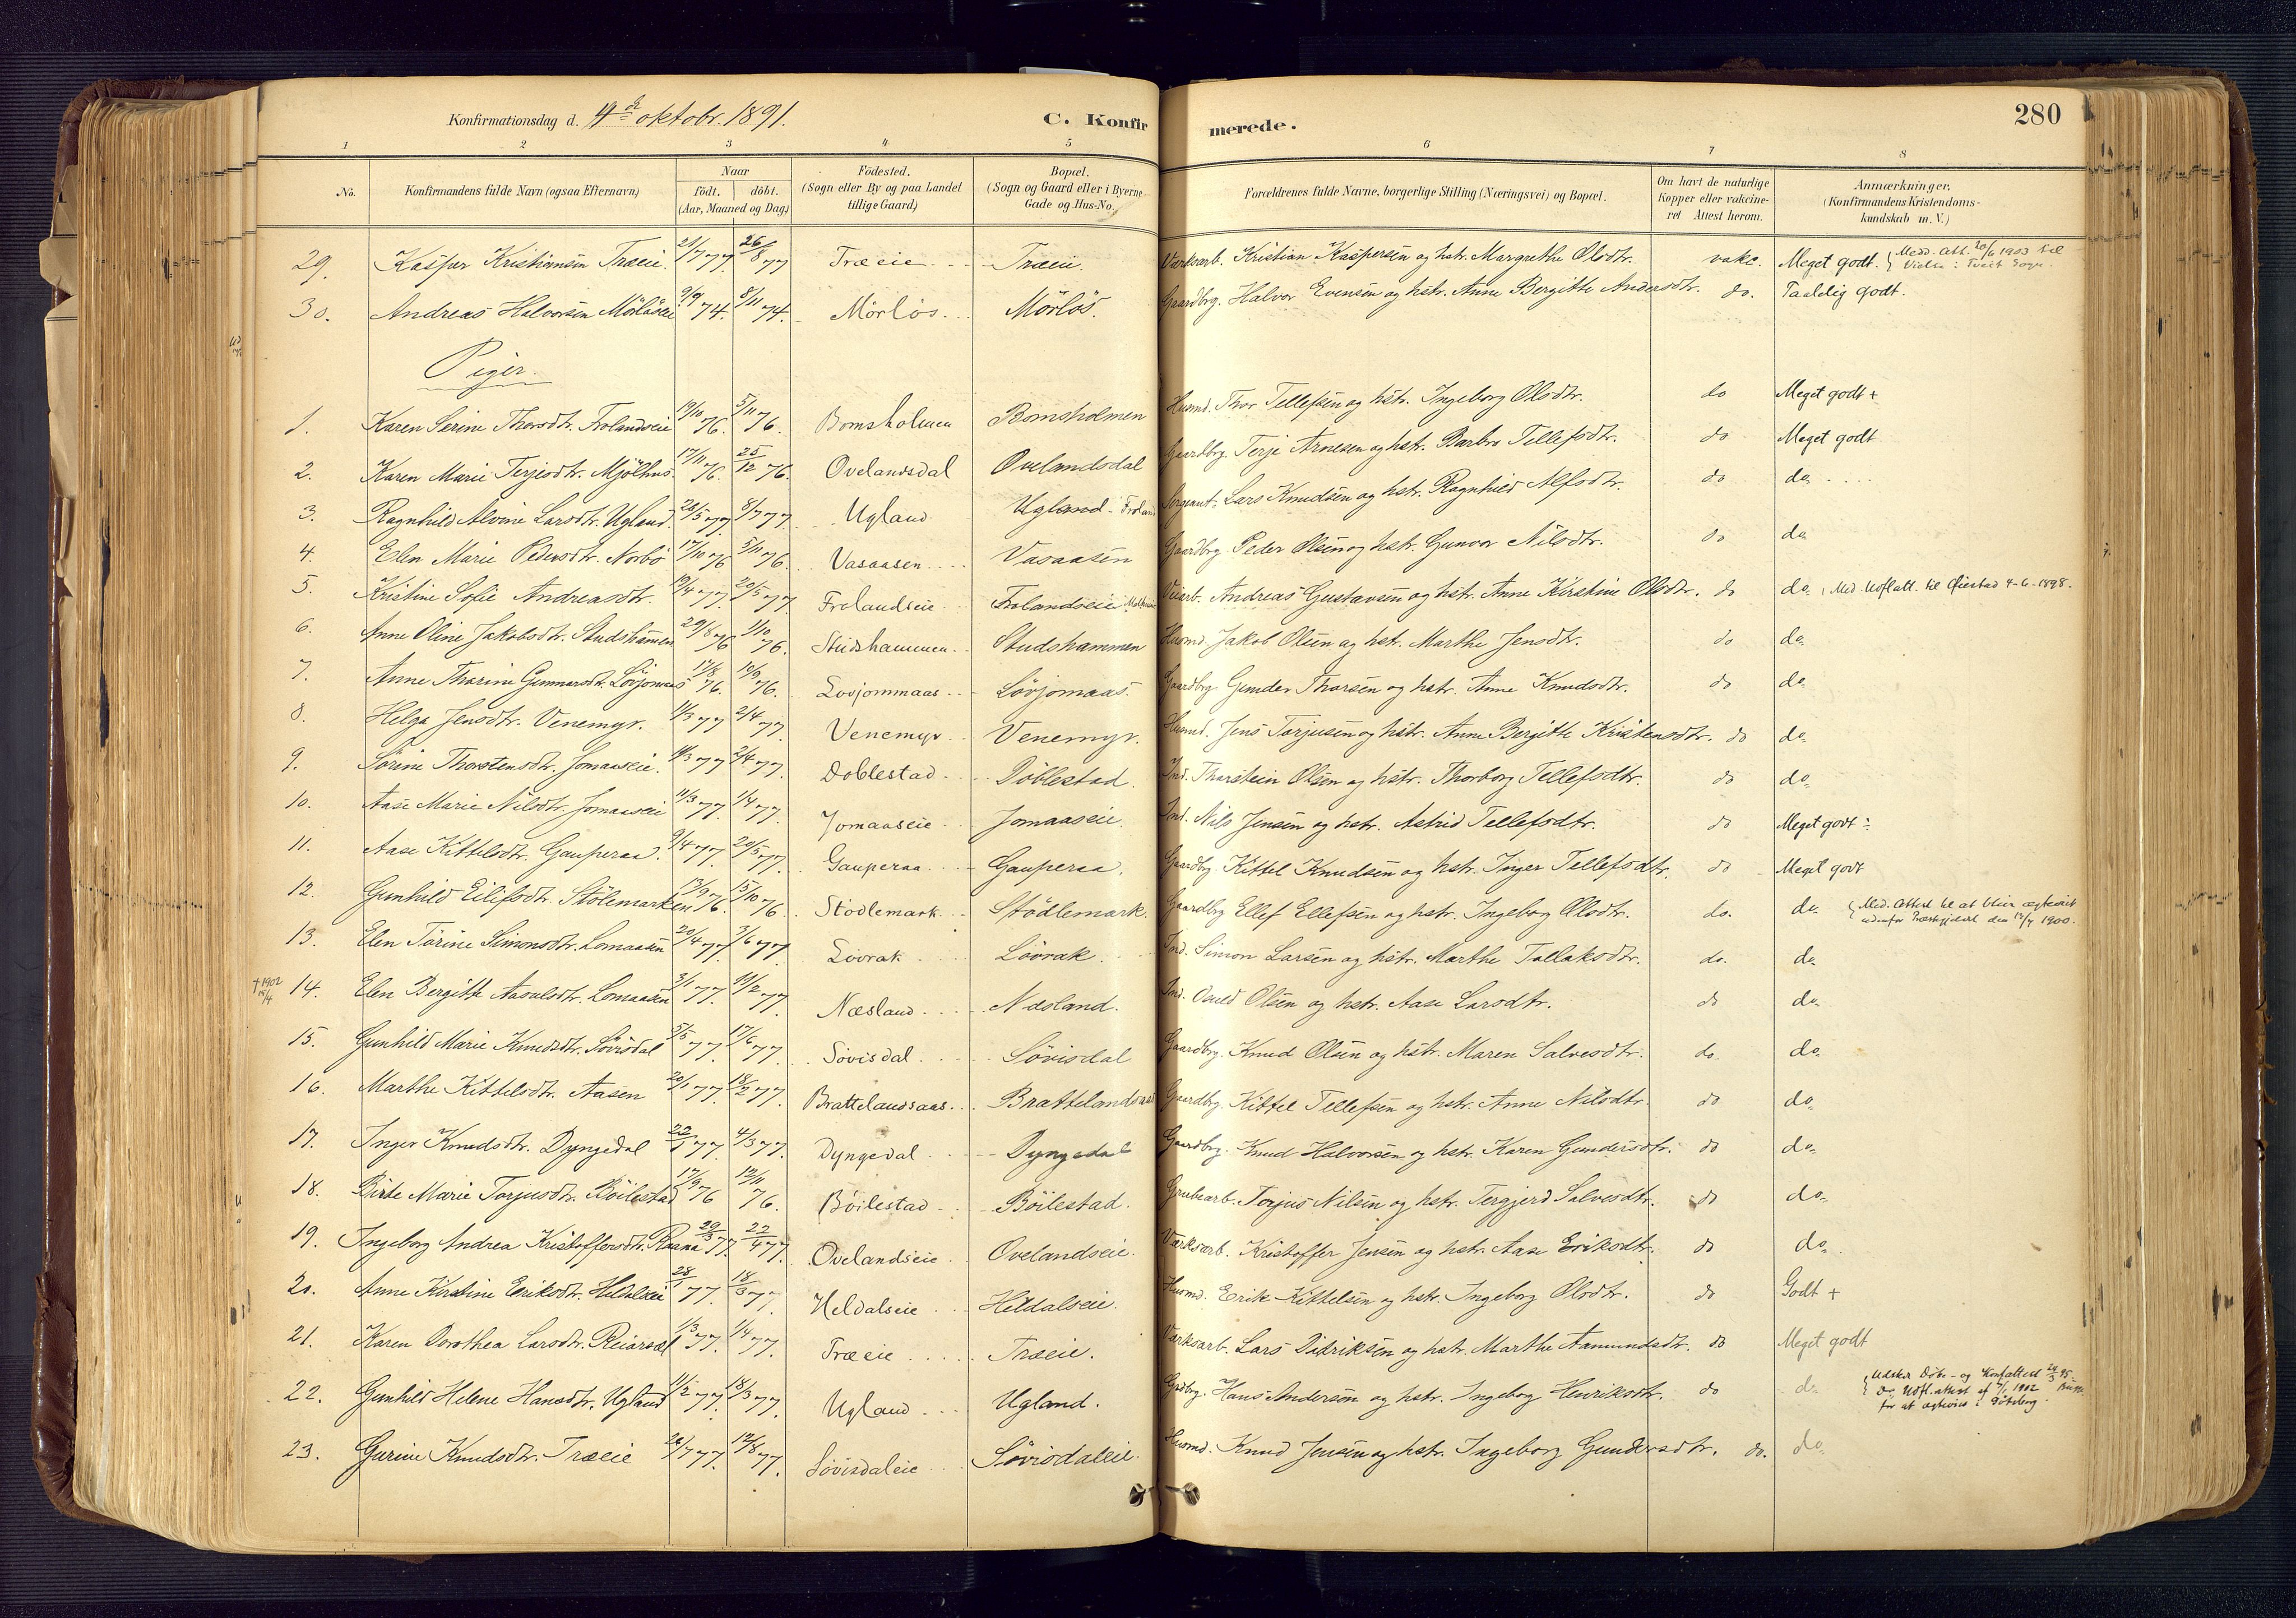 Konfirmationsdag d. 4de oktobr. 1891.
C. Konfirmerede.
280
1 2 3 4 5 6 7 8
No. Konfirmandens fulde Navn (ogsaa Efternavn) Naar Födt. döbt. (Aar, Maaned og Dag) Födested. (Sogn eller By og paa Landet tillige Gaard) Bopæl. (Sogn og Gaard eller i Byerne Gade og Hus-No. Forældrenes fulde Navne, borgerlige Stilling (Næringsvei) og Bopæl. Om havt de naturlige Kopper eller vakcineret Attest herom. Anmærkninger. (Konfirmandens Kristendomskundskab m. V.)
29. Kasper Kristiansen Træeie. 21/7 77 26/8 77 Træeie Træeie. Værksarb. Kristian Kaspersen og hstr. Margrethe Olsdtr. vakc. Meget godt. Medd. att. 20/6 1903 til Vielse i Tveit Sogn
30. Andreas Halvorsen Mörlöseie 9/9 74. 8/11 74. Mörlös. Mörlös. Gaardbrg. Halvor Evensen og hstr. Anne Bergitte Andersdtr. do. Taalelig godt.
Piger.
1. Karen Serine Thorsdtr. Frolandseie 19/10 76. 5/11 76. Bomsholmen Bomsholmen Husmd. Thor Tellefsen og hstr. Ingeborg Olsdtr. do Meget godt +
2. Karen Marie Terjesdtr. Mjölhus. 17/11 76. 25/12 76. Ovelandsdal Ovelandsdal Gaardbrg. Terje Arnesen og hstr. Barbro Tellefsdtr. do Meget godt
3. Ragnhild Alvine Larsdtr. Ugland. 28/5 77. 8/7 77. Ugland Ugland - Froland Sergeant. Lars Knudsen og hstr. Ragnhild Alfsdtr. do do
4. Elen Marie Pedersdtr. Norbö 17/10 76 5/11 76. Vasaasen Vasaasen Gaardbrg. Peder Olsen og hstr. Gunvor Nilsdtr. do do
5. Kristine Sofie Andreasdtr. 19/4 77. 20/5 77 Frolandseie Frolandseie Veiarb. Andreas Gustavsen og hstr. Anne Kirstine Olsdtr. do do. Med. Udfl.att. til Öiestad 4-6-1898.
6. Anne Oline Jakobsdtr. Studshammen 29/8 76 1/10 76. Studshammen Studshammen Husmd. Jakob Olsen og hstr. Marthe Jensdtr. do do.
7. Anne Tharine Gunnarsdtr. Lövjomaas 17/8 76. 10/9 76. Lovjommaas Lövjomaas. Gaardbrg Gunder Tharsen og hstr. Anne Knudsdtr. do do
8. Helga Jensdtr. Venemyr. 11/3 77 2/4 77. Venemyr Venemyr. Husmd. Jens Torjusen og hstr. Anne Bergitte Kristensdtr. do do.
9. Sörine Thorstensdtr. Jomaaseie. 11/3 77 2/4 77. Doblestad Döblestad. Ind. Tharstein Olsen og hstr. Thorborg Tellefsdtr. do do.
10. Aase Marie Nilsdtr. Jomaaseie 11/3 77. 1/4 77. Jomaaseie Jomaaseie. Ind. Nils Jensen og hstr. Astrid Tellefsdtr. do Meget godt ÷
11. Aase Kittelsdtr. Gauperaa. 9/4 77. 20/5 77. Gauperaa Gauperaa. Gaardbrg Kittel Knudsen og hstr. Inger Tellefsdtr. do Meget godt
12. Gunhild Eilifsdtr. Stölemarken 13/9 76. 15/10 76 Stödlemark Stödlemark. Gaardbrg Ellef Ellefsen og hstr. Ingeborg Olsdtr. do. do. Med. Attest til at blive ægteviet udenfor Præstegjeldet den 13/7 1900.
13. Elen Törine Simonsdtr. Lomaasen 20/4 77. 3/6 77. Lövrak Lövrak. Ind. Simon Larsen og hstr. Marthe Tallaksdtr. do. do
†1902 15/4 14. Elen Bergitte Aasulsdtr. Lomaasen 3/1 77. 11/2 77. Næsland Næsland. Ind. Osuld Olsen og hstr. Aase Larsdtr. do do.
15. Gunhild Marie Knudsdtr. Sövisdal 5/5 77. 17/6 77. Sövisdal Sövisdal Gaardbrg. Knud Olsen og hstr. Maren Salvesdtr. do. do.
16. Marthe Kittelsdtr. Aasen 20/1 77. 18/2 77. Brattelandsaas Brattelandsaas Gaardbrg. Kittel Tellefsen og hstr. Anne Nilsdtr. do do.
17. Inger Knudsdtr. Dyngedal 22/1 77. 4/3 77. Dyngedal Dyngedal Gaardbrg. Knud Halvorsen og hstr. Karen Gundersdtr. do do.
18. Birte Marie Torjusdtr. Böilestad 17/9 76 12/11 76. Böilestad Böilestad. Grubearb. Torjus Nilsen og hstr. Tergjerd Salvesdtr. do do.
19. Ingeborg Andrea Kristoffersdtr. Raana 29/3 77. 22/4 77. Ovelandseie Ovelandseie. Værksarb. Kristoffer Jensen og hstr. Aase Eriksdtr. do do.
20. Anne Kirstine Eriksdtr. Heldalseie 28/1 77. 18/3 77. Heldalseie Heldalseie. Husmd. Erik Kittelsen og hstr. Ingeborg Olsdtr. do Godt +
21. Karen Dorothea Larsdtr. Reiarsdal 1/3 77. 1/4 77. Træeie Træeie. Værksarb. Lars Didriksen og hstr. Marthe Aamundsdtr. do Meget godt
22. Gunhild Helene Hansdtr. Ugland 11/2 77. 18/3 77. Ugland Ugland. Grdbrg. Hans Andersen og hstr. Ingeborg Henriksdtr. do do. Udsker Döbs- og Konfattest 29/3 95. do. Udfl. attest af 7/1 1902 for at ægtevies i Göteborg.
23. Gurine Knudsdtr. Træeie 28/7 77. 12/8 77. Sövisdaleie Sövisdaleie. Husmd. Knud Jensen og hstr. Ingeborg Gundersdtr. do. do.